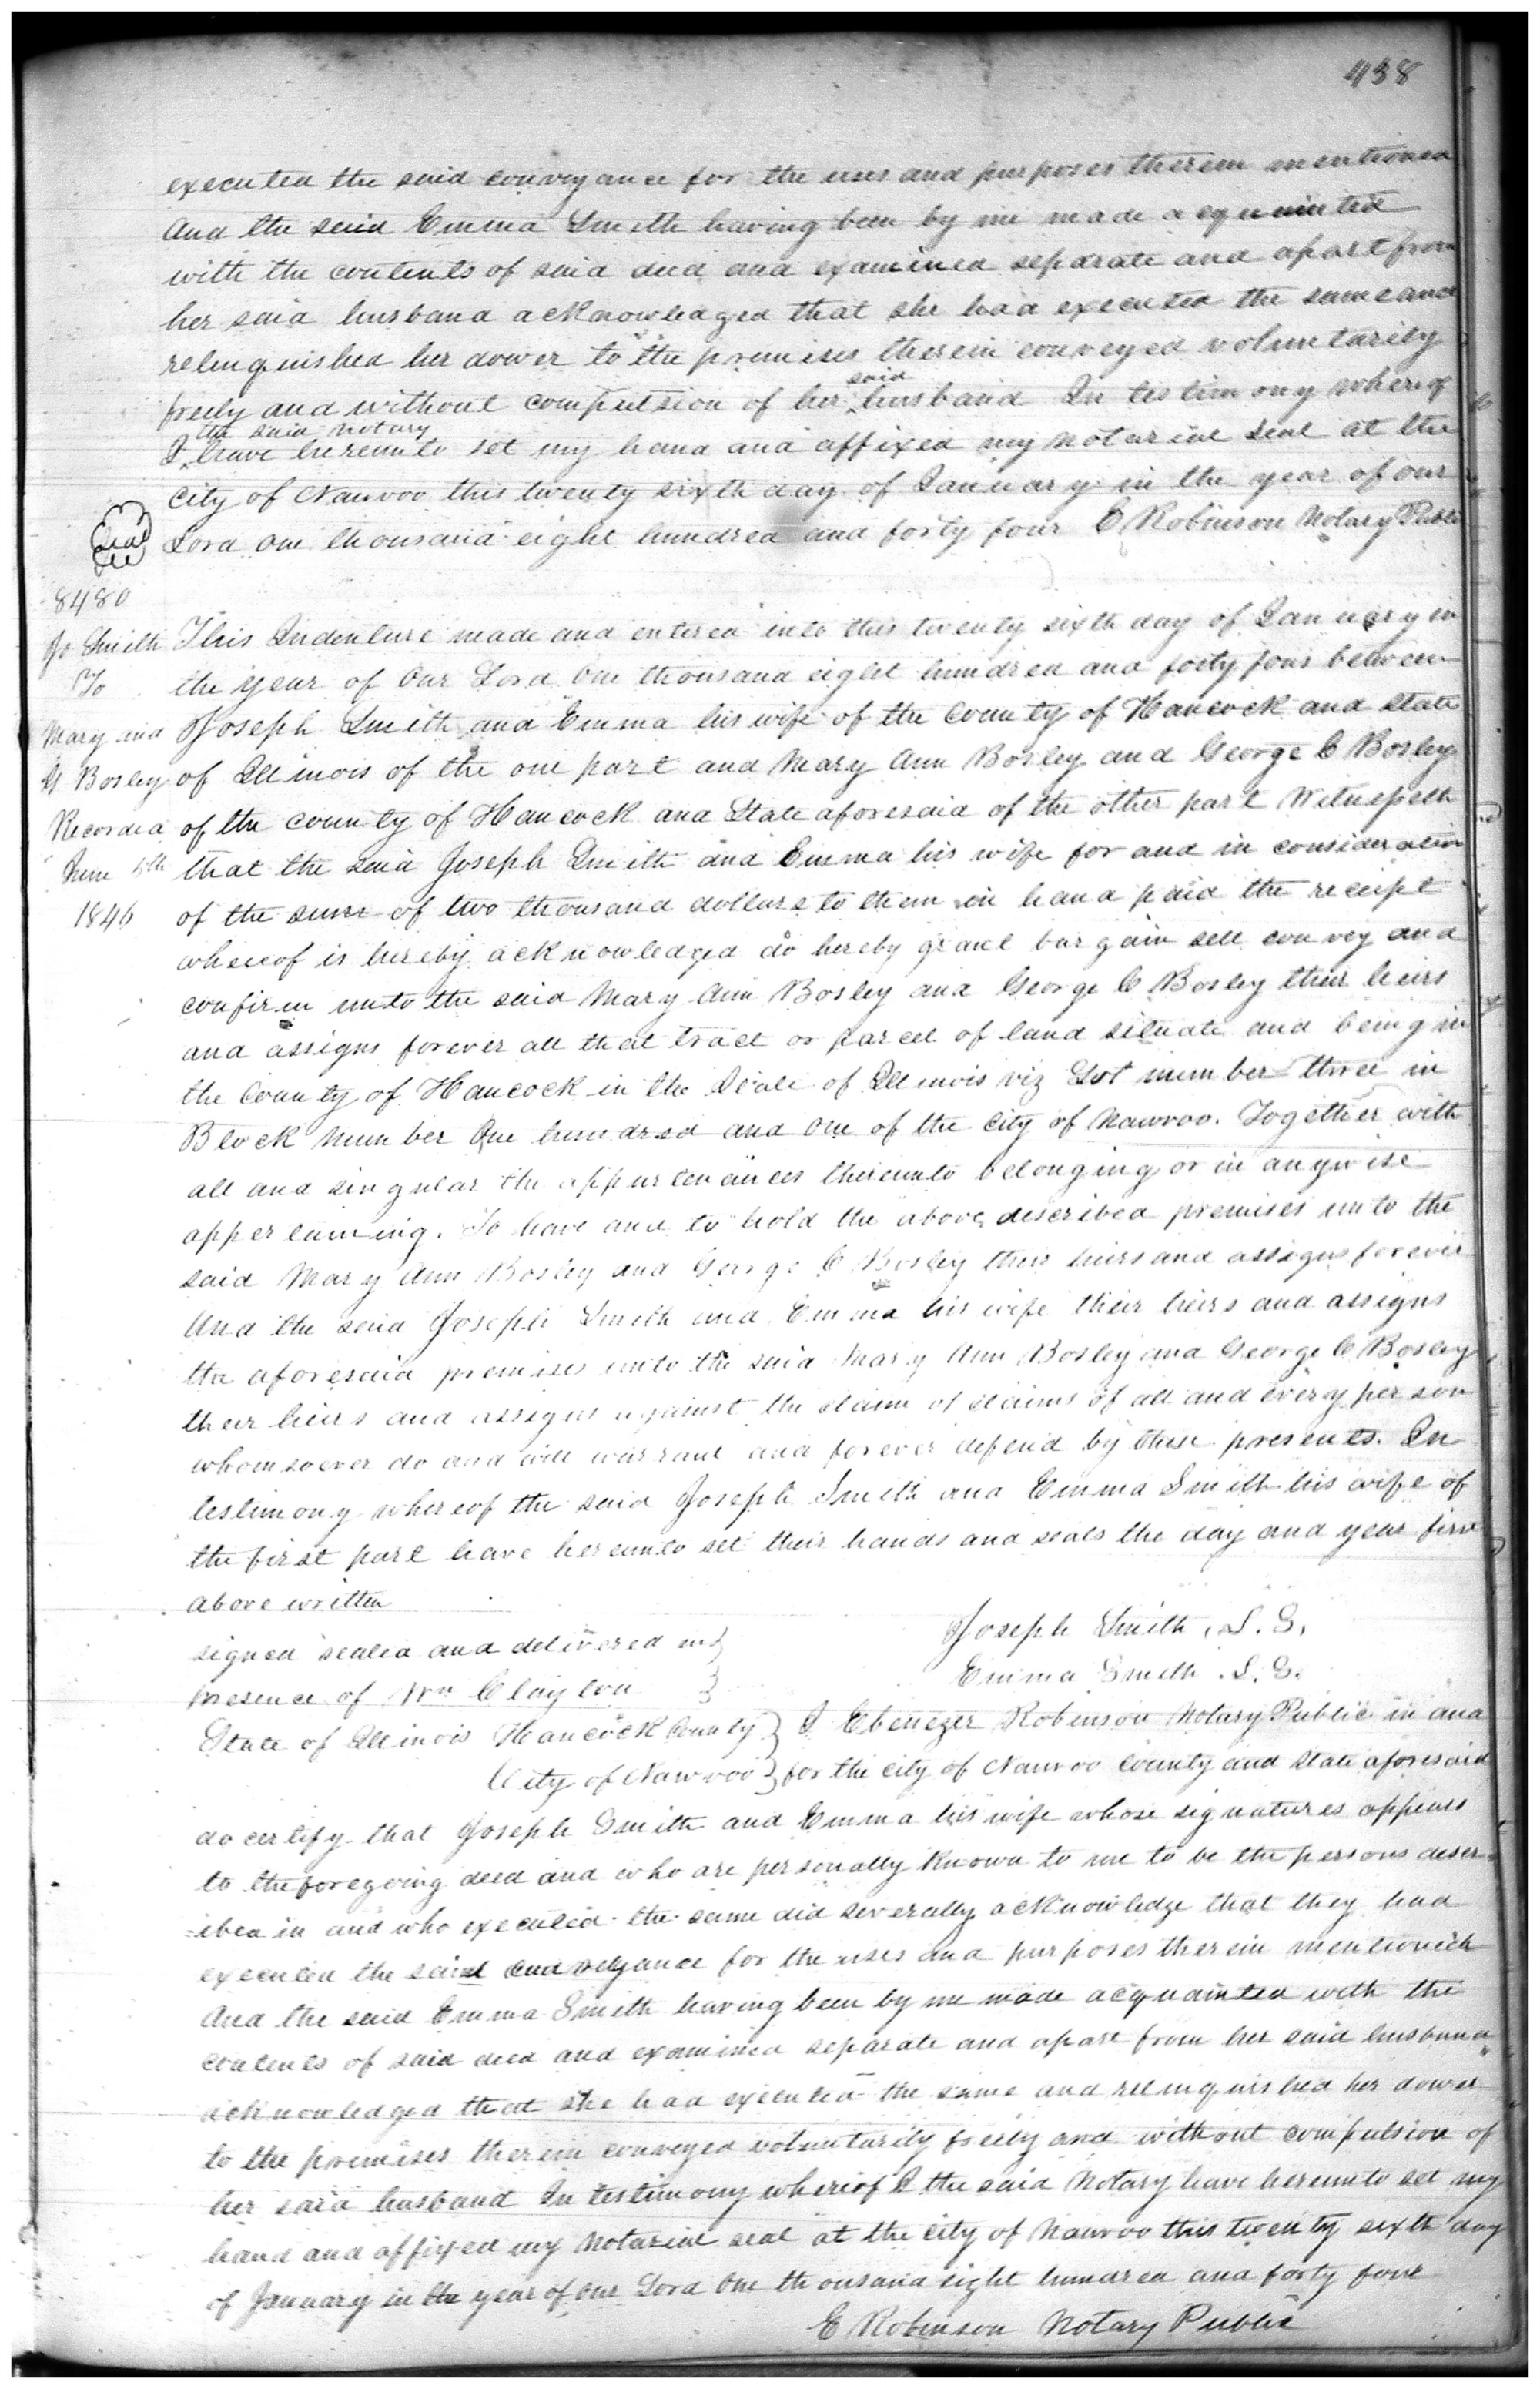 438
executed the said conveyance for the uses and purposes therein mentioned
And the said Emma Smith having been by me made acquainted
with the contents of said deed and examined separate and apart from
her said husband acknowledged that she had executed the same and
relinquished her dower to the premises therein conveyed voluntarily
freely and without compulsion of her said husband In testimony whereof
I the said notary have hereunto set my hand and affixed my notarial seal at the
City of Nauvoo this twenty sixth day of January in the year of our
Seal
Lord one thousand eight hundred and forty four E Robinson Notary Public
8480
Jo Smith
To
Mary and
G Bosley
Recorded
June 5th
1846
This Indenture made and entered into this twenty sixth day of January in
the year of Our Lord One thousand eight hundred and forty four between
Joseph Smith and Emma his wife of the County of Hancock and State
of Illinois of the one part and Mary Ann Bosley and George C Bosley
of the county of Hancock and State aforesaid of the other part Witnesseth
that the said Joseph Smith and Emma his wife for and in consideration
of the sum of two thousand dollars to them in hand paid the receipt
whereof is hereby acknowledged do hereby grant bargain sell convey and
confirm unto the said Mary Ann Bosley and George C Bosley their heirs
and assigns forever all that tract or parcel of land situate and being in
the County of Hancock in the State of Illinois viz Lot number three in
Block number One hundred and one of the City of Nauvoo. Together with
all and singular the appurtenances thereunto belonging or in anywise
appertaining. To have and to hold the above described premises unto the
said Mary Ann Bosley and George C Bosley their heirs and assigns forever
And the said Joseph Smith and Emma his wife their heirs and assigns
the aforesaid premises unto the said Mary Ann Bosley and George C Bosley
their heirs and assigns against the claim of claims of all and every person
whomsoever do and will warrant and forever defend by these presents. In
testimony whereof the said Joseph Smith and Emma Smith his wife of
the first part have hereunto set their hands and seals the day and year first
above written
signed sealed and delivered in }
presence of Wm Clayton }
Joseph Smith L. S.
Emma Smith L. S.
State of Illinois Hancock County } I Ebenezer Robinson Notary Public in and
City of Nauvoo } for the city of Nauvoo County and State aforesaid
do certify that Joseph Smith and Emma his wife whose signatures appears
to the foregoing deed and who are personally known to me to be the persons descr-
-ibed in and who executed the same did severally acknowledge that they had
executed the said conveyance for the uses and purposes therein mentioned
And the said Emma Smith having been by me made acquainted with the
contents of said deed and examined separate and apart from her said husband
acknowledged that she had executed the same and relinquished her dower
to the premises therein conveyed voluntarily freely and without compulsion of
her said husband In testimony whereof I the said Notary have hereunto set my
hand and affixed my Notarial seal at the city of Nauvoo this twenty sixth day
of January in the year of our Lord One thousand eight hundred and forty four
E Robinson Notary Public